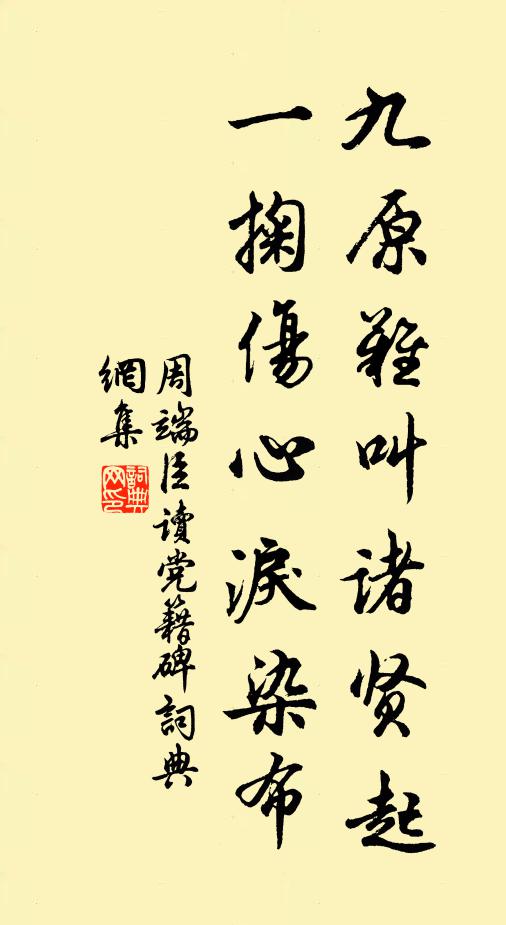 九原難叫诸贤起
一掬傷心淚染布
周端臣读党籍碑詞典
網集
詞典网印